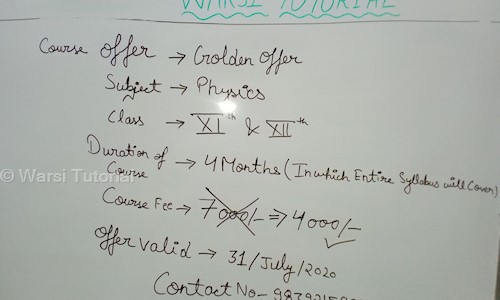 WARSI TUTORIAL
Course Offer → Golden Offer
Subject → Physics
Class → XIth & XIIth
Duration of Course → 4 Months (In which Entire Syllabus will Cover)
© Warsi Tutorial
Course Fee → 7000/- ⇒ 4000/-
Offer valid → 31/July/2020
Contact No -